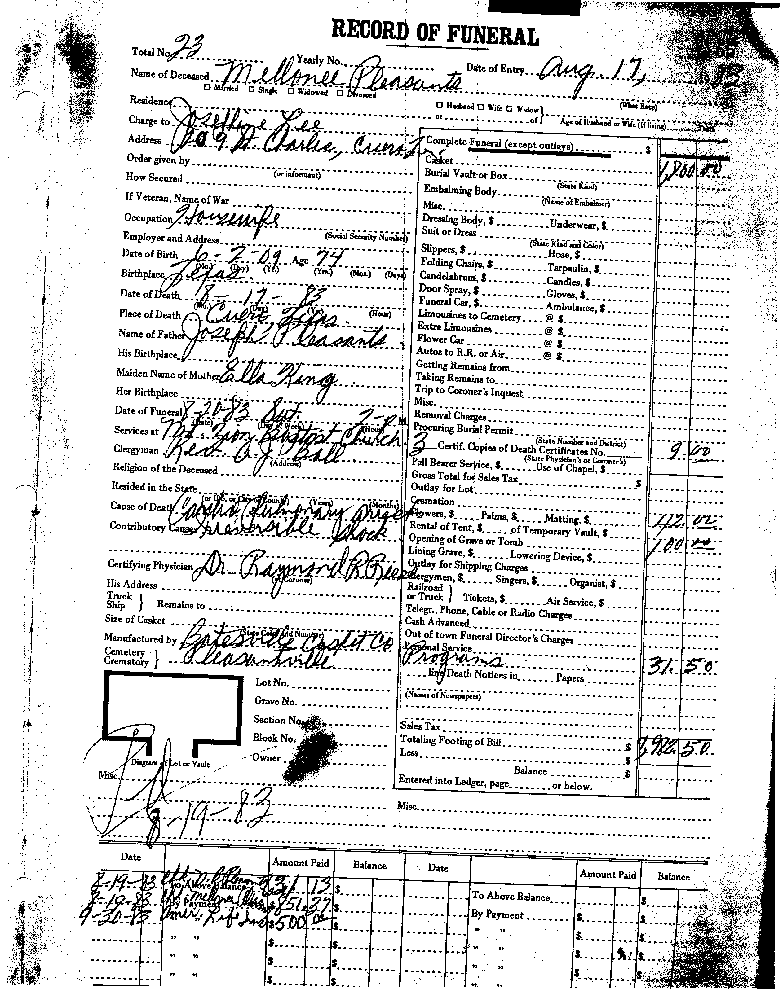 RECORD OF FUNERAL
Total No. 23 Yearly No.
Name of Deceased Mellonee Pleasants Date of Entry Aug. 17, 83
☐ Married ☐ Single ☐ Widowed ☐ Divorced
☐ Husband ☐ Wife ☐ Widow
or of Age of Husband or Wife (if living) Years
Residence
Charge to Josephine Lee
Address 709 St. Charles, Cuero
Order given by
(or informant)
How Secured
If Veteran, Name of War
Occupation Housewife
(Social Security Number)
Employer and Address
Date of Birth 6-2-09 Age 74
(Yrs.) (Mos.) (Days)
Birthplace Texas
Date of Death 8-17-83
Place of Death Cuero Texas (Hour)
Name of Father Joseph Pleasants
His Birthplace
Maiden Name of Mother Ella King
Her Birthplace
Date of Funeral 8-20-83 Sat.
Services at Mt. Zion Babtist Church
Clergyman Rev. A. J. Ball
(Address)
Religion of the Deceased
Resided in the State
(Years) (Months)
Cause of Death Cardio Pulmonary Arrest
Contributory Causes Irreversible Shock
Certifying Physician Dr. Raymond R. Reese
His Address
Truck
Ship } Remains to
Size of Casket
Manufactured by Batesville Casket Co
Cemetery
Crematory } Pleasantville
Lot No.
Grave No.
Section No.
Block No.
Owner
Diagram of Lot or Vault
Misc.
Pd
8-19-83
Complete Funeral (except outlays) $
Casket 1,800 00
Burial Vault or Box
(State Kind)
Embalming Body
(Name of Embalmer)
Misc.
Dressing Body, $ Underwear, $
Suit or Dress
(State Kind and Color)
Slippers, $ Hose, $
Folding Chairs, $ Tarpaulin, $
Candelabrum, $ Candles, $
Door Spray, $ Gloves, $
Funeral Car, $ Ambulance, $
Limousines to Cemetery @ $
Extra Limousines @ $
Flower Car @ $
Autos to R.R. or Air @ $
Getting Remains from
Taking Remains to
Trip to Coroner's Inquest
Misc.
Removal Charges
Procuring Burial Permit
(State Number and District)
3 Certif. Copies of Death Certificates No. 9 00
(State Physician's or Coroner's)
Pall Bearer Service, $ Use of Chapel, $
Gross Total for Sales Tax $
Outlay for Lot
Cremation
Flowers, $ Palms, $ Matting, $ 42 00
Rental of Tent, $ of Temporary Vault, $
Opening of Grave or Tomb 100 00
Lining Grave, $ Lowering Device, $
Outlay for Shipping Charges
Clergymen, $ Singers, $ Organist, $
Railroad
or Truck } Tickets, $ Air Service, $
Telegr., Phone, Cable or Radio Charges
Cash Advanced
Out of town Funeral Director's Charges
Personal Service
Programs 31. 50
Death Notices in Papers
(Names of Newspapers)
Sales Tax
Totaling Footing of Bill $ 1,982. 50
Less $
Balance $
Entered into Ledger, page or below.
Misc.
Date Amount Paid Balance Date Amount Paid Balance
8-19-83 To Above Balance 631 13 $ To Above Balance $
8-19-83 By Payment $ 851.37 $ By Payment $
9-30-83 Amer. Life Ins $ 500 00